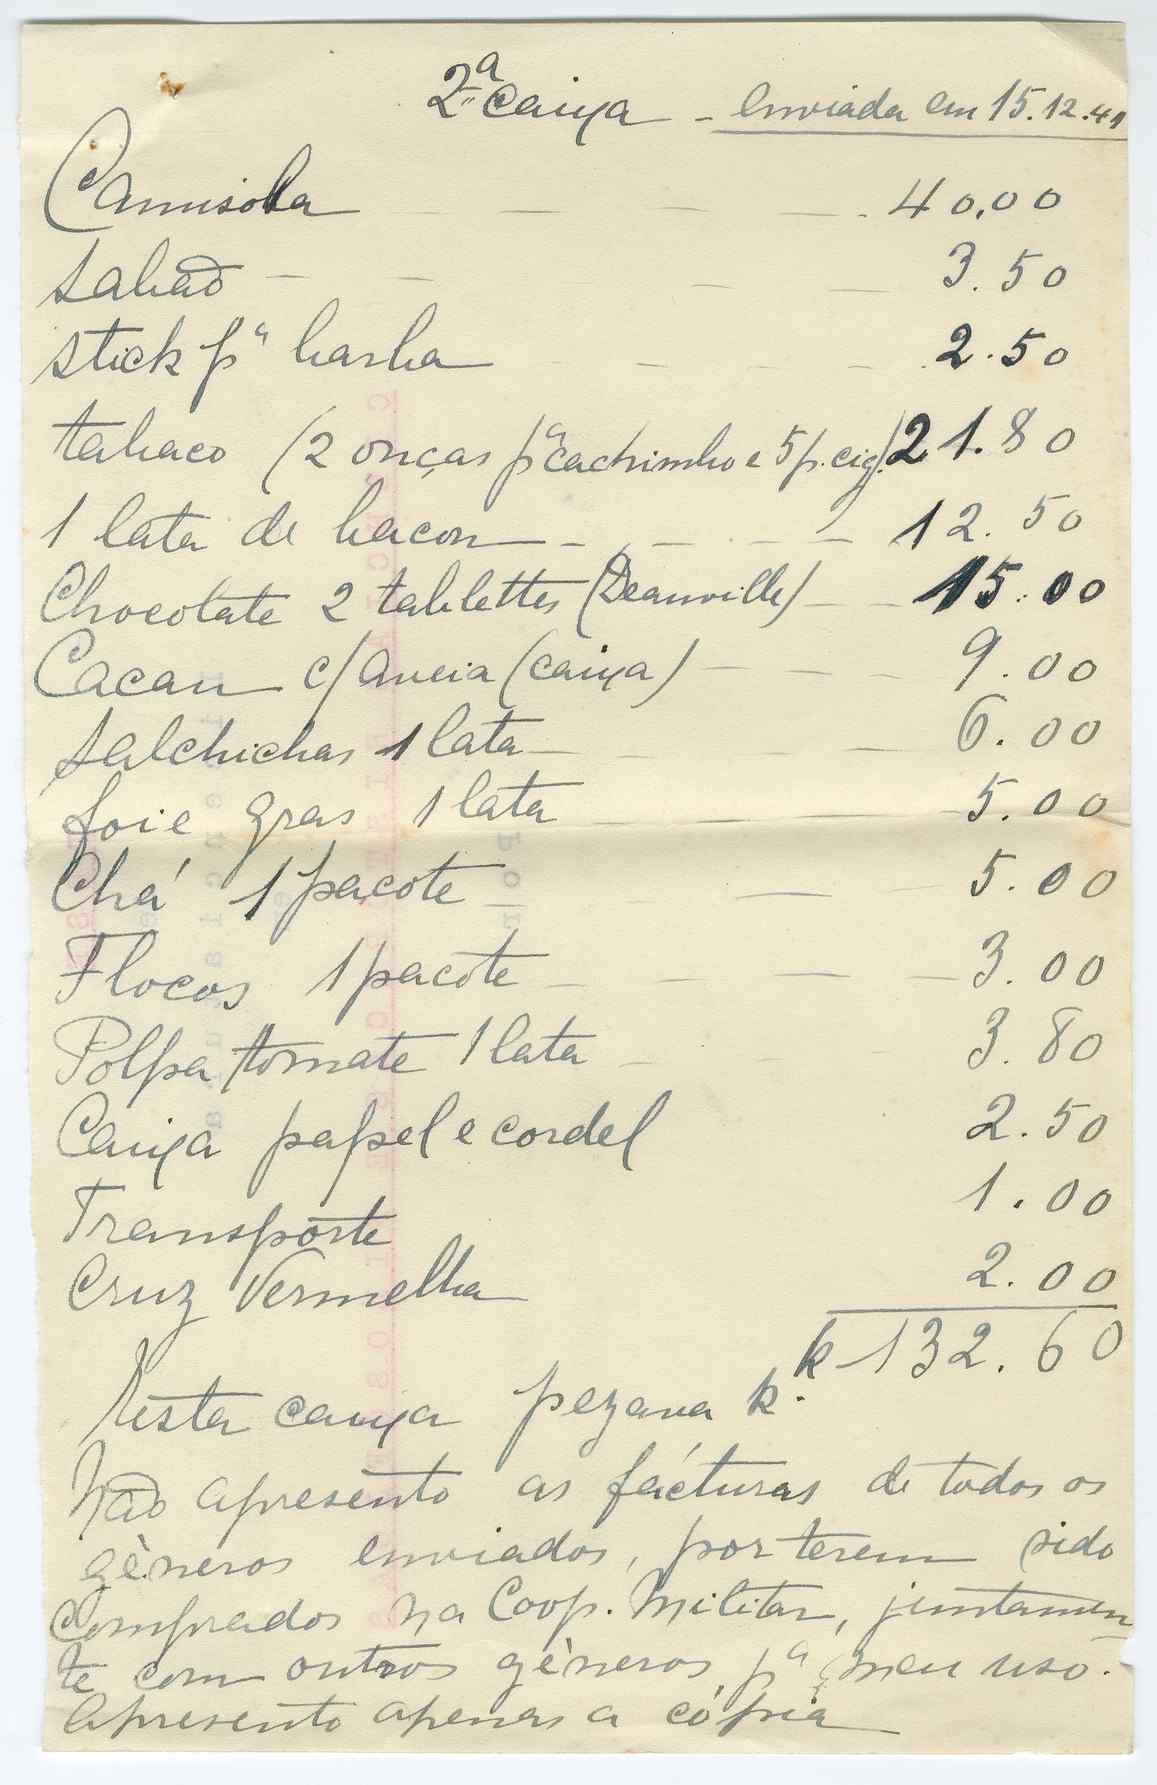 2ª caixa - enviada em 15.12.41
Camisola - - - - 40,00
Sabão - - - - 3.50
Stick pª barba - - - 2.50
tabaco (2 onças pª cachimbo e 5 p. cig.) 21.80
1 lata de bacon - - - - 12.50
Chocolate 2 tablettes (Deauville) - - 15.00
Cacau c/ aveia (caixa) - - - 9.00
Salchichas 1 lata - - - 6.00
foie gras 1 lata - - - 5.00
Chá 1 pacote - - 5.00
Flocos 1 pacote - - - - 3.00
Polpa tomate 1 lata - - - 3.80
Caixa papel e cordel 2.50
Transporte 1.00
Cruz Vermelha 2.00
132.60
caixa pezava k.
Não apresento as fácturas de todos os
gèneros enviados, por terem sido
comprados na Coop. Militar, juntamen
te com outros gèneros pª meu uso.
Apresento apenas a cópia